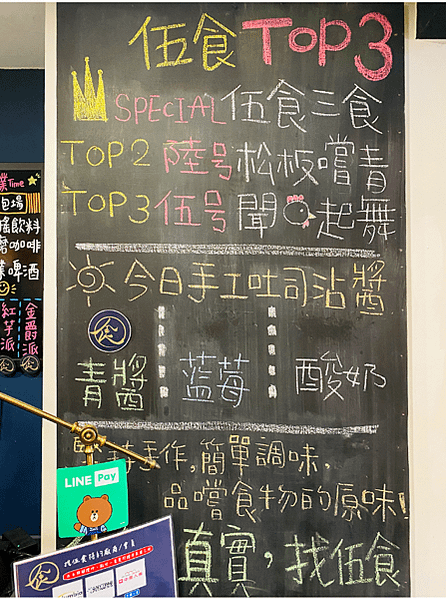 伍食TOP3
SPECIAL伍食三食
TOP2 陸号松板嚐青
TOP3 伍号聞起舞
今日手工吐司沾醬
食
青醬 藍莓 酸奶
堅持手作,簡單調味,
品嚐食物的原味!
真實,找伍食
LINE Pay
找伍業務的廠商/會員
食
Time
包場
飲料
咖啡
啤酒
紅芋派
金爵派